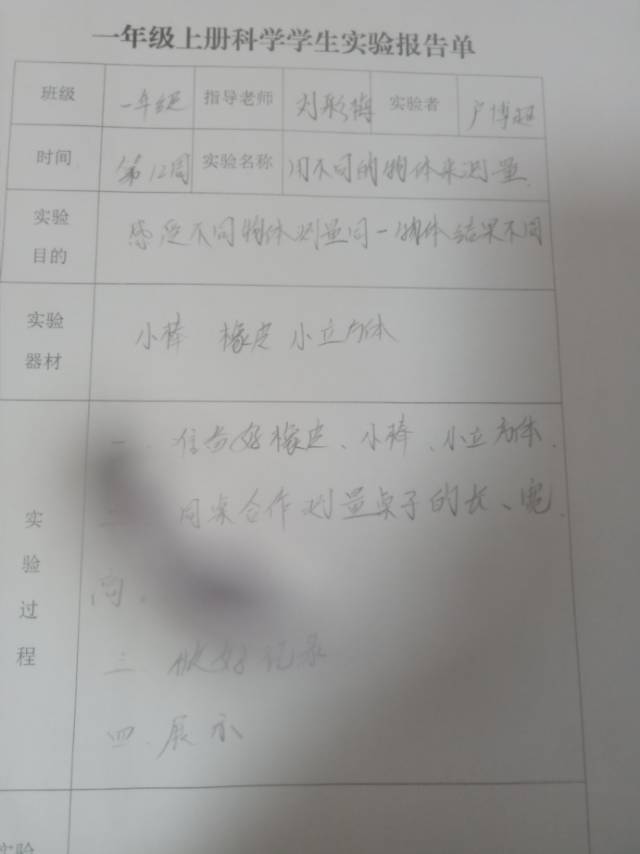 一年级上册科学学生实验报告单
班级 一年级 指导老师 刘彩梅 实验者 卢博超
时间 第12周 实验名称 用不同的物体来测量
实验目的 感受不同物体测量同一物体结果不同
实验器材 小棒 橡皮 小立方体
实验过程 一、准备好橡皮、小棒、小立方体.
二、同桌合作测量桌子的长、宽、
高。
三 做好记录
四、展示
实验